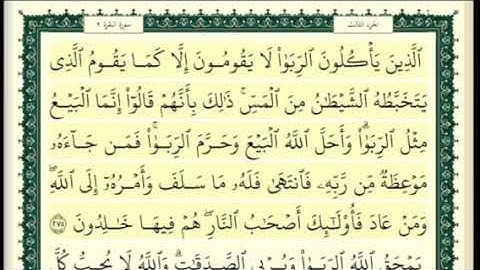 الجزء الثالث
سورة البقرة ٢
ٱلَّذِينَ يَأْكُلُونَ ٱلرِّبَوٰا۟ لَا يَقُومُونَ إِلَّا كَمَا يَقُومُ ٱلَّذِى
يَتَخَبَّطُهُ ٱلشَّيْطَٰنُ مِنَ ٱلْمَسِّ ۚ ذَٰلِكَ بِأَنَّهُمْ قَالُوٓا۟ إِنَّمَا ٱلْبَيْعُ
مِثْلُ ٱلرِّبَوٰا۟ ۗ وَأَحَلَّ ٱللَّهُ ٱلْبَيْعَ وَحَرَّمَ ٱلرِّبَوٰا۟ ۚ فَمَن جَآءَهُۥ
مَوْعِظَةٌ مِّن رَّبِّهِۦ فَٱنتَهَىٰ فَلَهُۥ مَا سَلَفَ وَأَمْرُهُۥٓ إِلَى ٱللَّهِ ۖ
وَمَنْ عَادَ فَأُو۟لَٰٓئِكَ أَصْحَٰبُ ٱلنَّارِ ۖ هُمْ فِيهَا خَٰلِدُونَ
يَمْحَقُ ٱللَّهُ ٱلرِّبَوٰا۟ وَيُرْبِى ٱلصَّدَقَٰتِ ۗ وَٱللَّهُ لَا يُحِبُّ كُلَّ